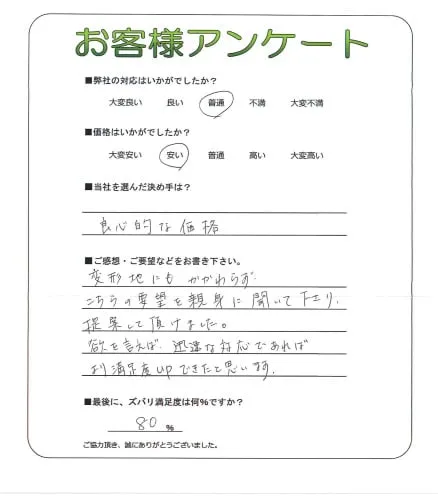 お客様アンケート
■弊社の対応はいかがでしたか？
大変良い 良い 普通 不満 大変不満
■価格はいかがでしたか？
大変安い 安い 普通 高い 大変高い
■当社を選んだ決め手は？
良心的な価格
■ご感想・ご要望などをお書き下さい。
変形地にもかかわらず
こちらの要望を親身に聞いて下さり、
提案して頂けました。
欲を言えば、迅速な対応であれば
より満足度UPできたと思います。
■最後に、ズバリ満足度は何％ですか？
80 %
ご協力頂き、誠にありがとうございました。